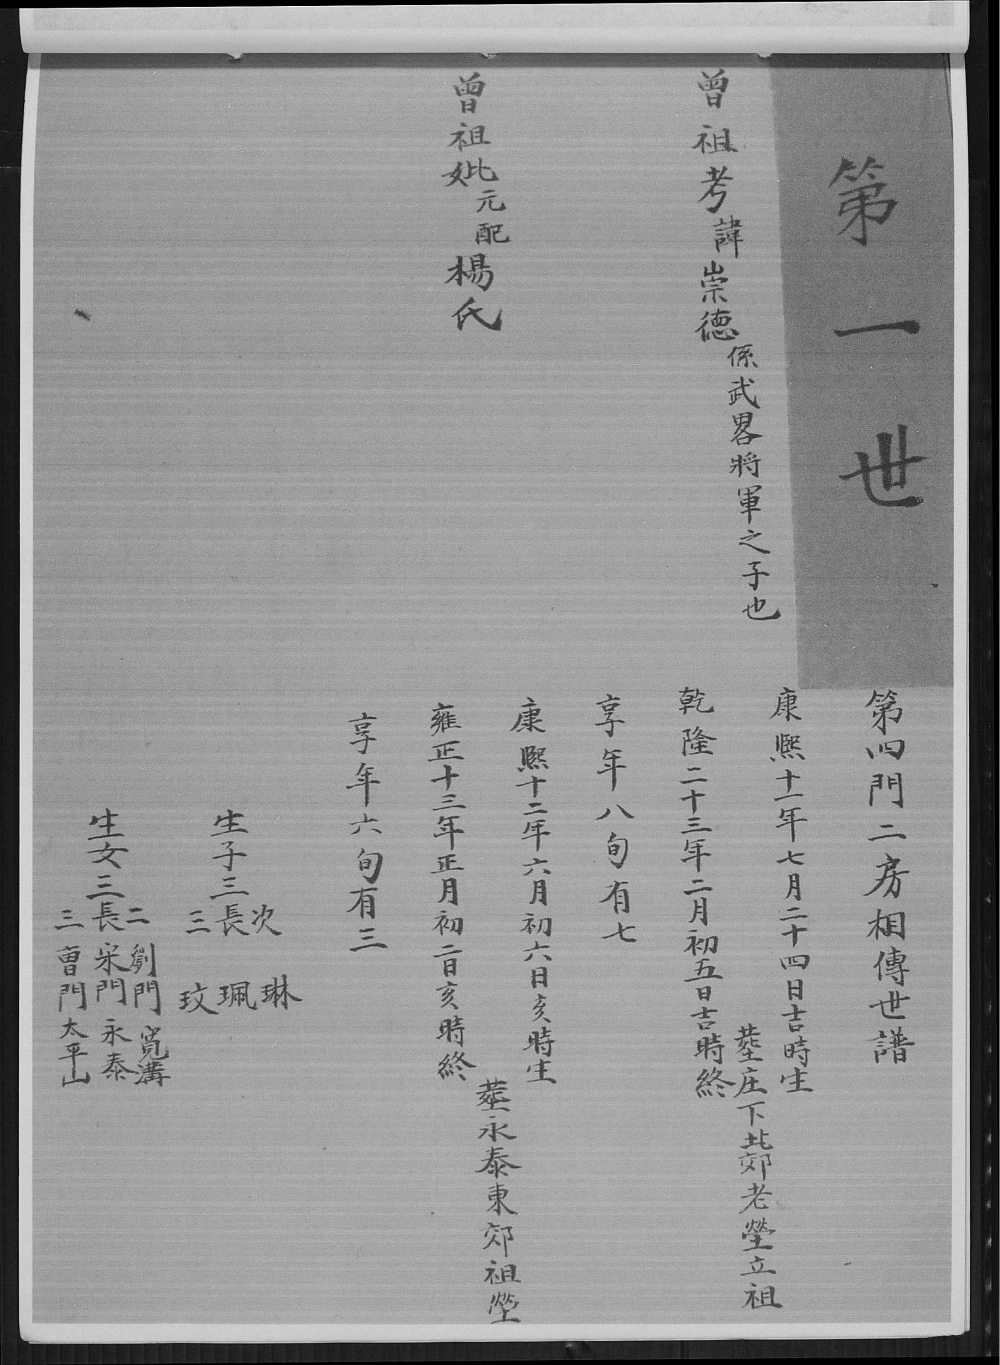 第一世
第四門二房相傳世譜
曾祖考諱崇德係武畧將軍之子也
康熙十一年七月二十四日吉時生
乾隆二十三年二月初五日吉時終
塟庄下北郊老塋立祖
享年八旬有七
曾祖妣元配楊氏
康熙十二年六月初六日亥時生
雍正十三年正月初二日亥時終
塟永泰東郊祖塋
享年六旬有三
生子三
長珮
次琳
三玟
生女三
長宋門永泰
二劉門寬溝
三曹門太平山